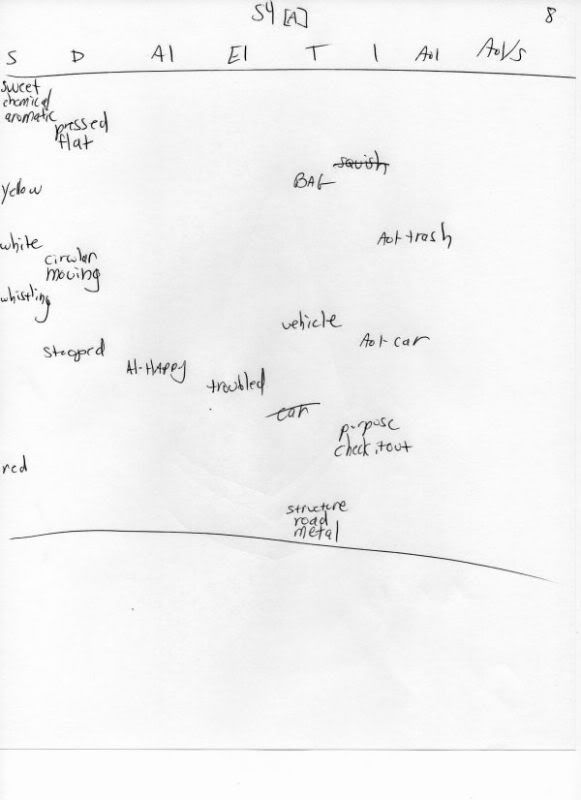 S4 [A]
8
S D AI EI T I AOL AOL/S
sweet
chemical
aromatic
pressed
flat
squish
BAG
yellow
AOL trash
white
circular
moving
whistling
vehicle
AOL car
stopped
AI-HAPPY
troubled
car
purpose
check it out
red
structure
road
metal